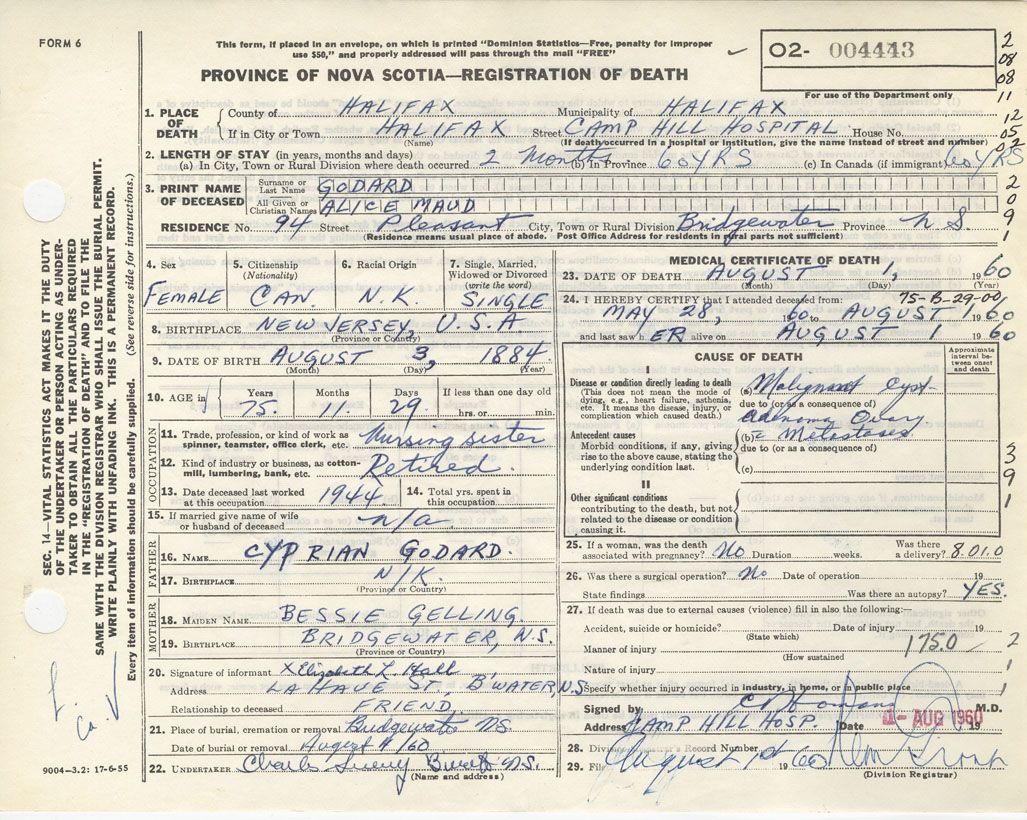 FORM 6
This form, if placed in an envelope, on which is printed "Dominion Statistics—Free, penalty for improper
use $50," and properly addressed will pass through the mail "FREE"
O2- 004443
For use of the Department only
PROVINCE OF NOVA SCOTIA—REGISTRATION OF DEATH
2
08
08
11
12
05
02
2
0
9
1
1. PLACE OF DEATH { County of HALIFAX Municipality of HALIFAX
If in City or Town HALIFAX Street CAMP HILL HOSPITAL House No.
(Name) (If death occurred in a hospital or institution, give the name instead of street and number)
2. LENGTH OF STAY (in years, months and days)
(a) In City, Town or Rural Division where death occurred 2 Months (b) In Province 60 YRS (c) In Canada (if immigrant) 60 YRS
3. PRINT NAME OF DECEASED { Surname or Last Name GODARD
All Given or Christian Names ALICE MAUD
RESIDENCE No. 94 Street Pleasant City, Town or Rural Division Bridgewater Province N.S.
(Residence means usual place of abode. Post Office Address for residents in rural parts not sufficient)
SEC. 14—VITAL STATISTICS ACT MAKES IT THE DUTY
OF THE UNDERTAKER OR PERSON ACTING AS UNDER-
TAKER TO OBTAIN ALL THE PARTICULARS REQUIRED
IN THE "REGISTRATION OF DEATH" AND TO FILE THE
SAME WITH THE DIVISION REGISTRAR WHO SHALL ISSUE THE BURIAL PERMIT.
WRITE PLAINLY WITH UNFADING INK. THIS IS A PERMANENT RECORD.
Every item of information should be carefully supplied. (See reverse side for instructions.)
4. Sex FEMALE
5. Citizenship (Nationality) CAN.
6. Racial Origin N.K.
7. Single, Married, Widowed or Divorced (write the word) SINGLE
8. BIRTHPLACE NEW JERSEY, U.S.A
(Province or Country)
9. DATE OF BIRTH AUGUST 3, 1884
(Month) (Day) (Year)
10. AGE in Years 75. Months 11. Days 29. If less than one day old hrs. or min.
OCCUPATION
11. Trade, profession, or kind of work as spinner, teamster, office clerk, etc. Nursing sister
12. Kind of industry or business, as cotton-mill, lumbering, bank, etc. Retired.
13. Date deceased last worked at this occupation 1944 14. Total yrs. spent in this occupation
15. If married give name of wife or husband of deceased n/a
FATHER
16. NAME CYPRIAN GODARD.
17. BIRTHPLACE N/K.
(Province or Country)
MOTHER
18. MAIDEN NAME BESSIE GELLING.
19. BIRTHPLACE BRIDGEWATER, N.S.
(Province or Country)
20. Signature of informant X Elizabeth L Hall
Address LA HAVE ST., B'WATER, N.S
Relationship to deceased FRIEND.
21. Place of burial, cremation or removal Bridgewater NS
Date of burial or removal August 4/60
22. UNDERTAKER Charles N.S.
(Name and address)
9004—3.2: 17-6-55
MEDICAL CERTIFICATE OF DEATH
23. DATE OF DEATH AUGUST 1, 1960
(Month) (Day) (Year)
24. I HEREBY CERTIFY that I attended deceased from: 75-B-29-00
MAY 28, 1960 to AUGUST 1 1960
and last saw hER alive on AUGUST 1 1960
CAUSE OF DEATH
Approximate interval between onset and death
I
Disease or condition directly leading to death
(This does not mean the mode of dying, e.g., heart failure, asthenia, etc. It means the disease, injury, or complication which caused death.)
(a) Malignant Cyst-
due to (or as a consequence of)
adenoma Ovary
Antecedent causes
Morbid conditions, if any, giving rise to the above cause, stating the underlying condition last.
(b) c Metastases
due to (or as a consequence of)
(c)
II
Other significant conditions contributing to the death, but not related to the disease or condition causing it.
3
9
1
25. If a woman, was the death associated with pregnancy? No Duration weeks. Was there a delivery? 8.01.0
26. Was there a surgical operation? No Date of operation 19
State findings Was there an autopsy? YES.
27. If death was due to external causes (violence) fill in also the following:—
Accident, suicide or homicide? Date of injury 19
(State which)
Manner of injury 175.0 2
(How sustained)
Nature of injury 1
Specify whether injury occurred in industry, in home, or in public place 1
Signed by M.D.
Address CAMP HILL HOSP. Date 1- AUG 1960 19
28. Division Registrar's Record Number
29. Filed August 1st 1960
(Division Registrar)